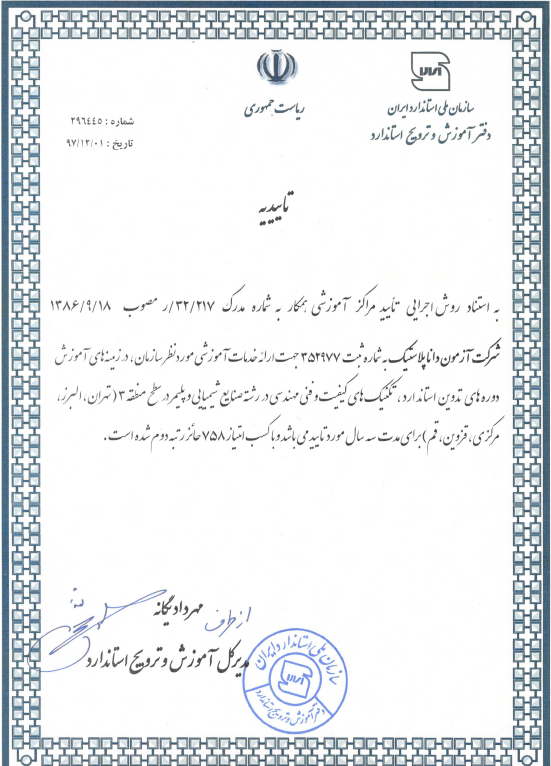 ریاست جمهوری
سازمان ملی استاندارد ایران
دفتر آموزش و ترویج استاندارد
شماره : ۲۹٦٤٤٥
تاریخ : ۹۷/۱۲/۰۱
تاییدیه
به استناد روش اجرایی تأیید مراکز آموزشی همکار به شماره مدرک ۳۲/۲۱۷/ر مصوب ۱۳۸۶/۹/۱۸
شرکت آزمون دانا پلاستیک به شماره ثبت ۳۵۲۹۷۷ جهت ارائه خدمات آموزشی مورد نظر سازمان، در زمینه های آموزش
دوره های تدوین استاندارد، تکنیک های کیفیت و فنی مهندسی در رشته صنایع شیمیایی و پلیمر در سطح منطقه ۳ (تهران، البرز،
مرکزی، قزوین، قم) برای مدت سه سال مورد تایید می باشد و با کسب امتیاز ۷۵۸ حائز رتبه دوم شده است.
از طرف
مهرداد یگانه
مدیرکل آموزش و ترویج استاندارد
سازمان ملی استاندارد ایران
دفتر آموزش و ترویج استاندارد